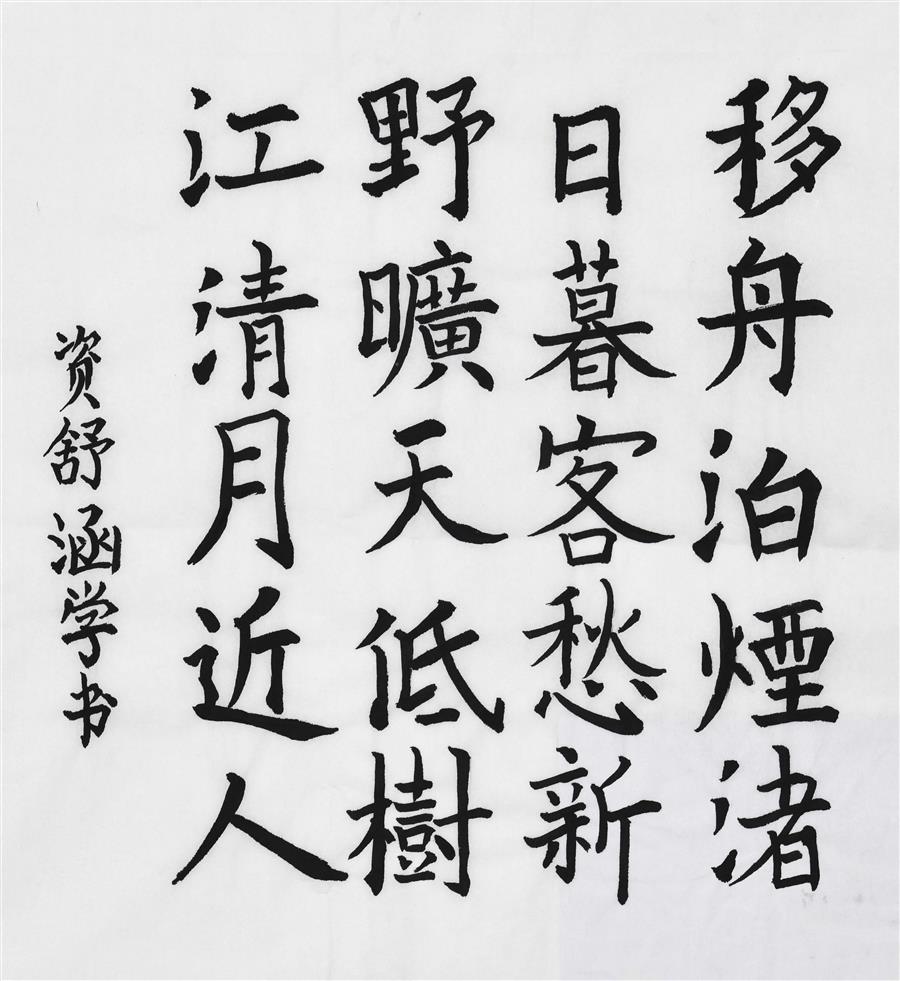 移舟泊煙渚
日暮客愁新
野曠天低樹
江清月近人
资舒涵学书